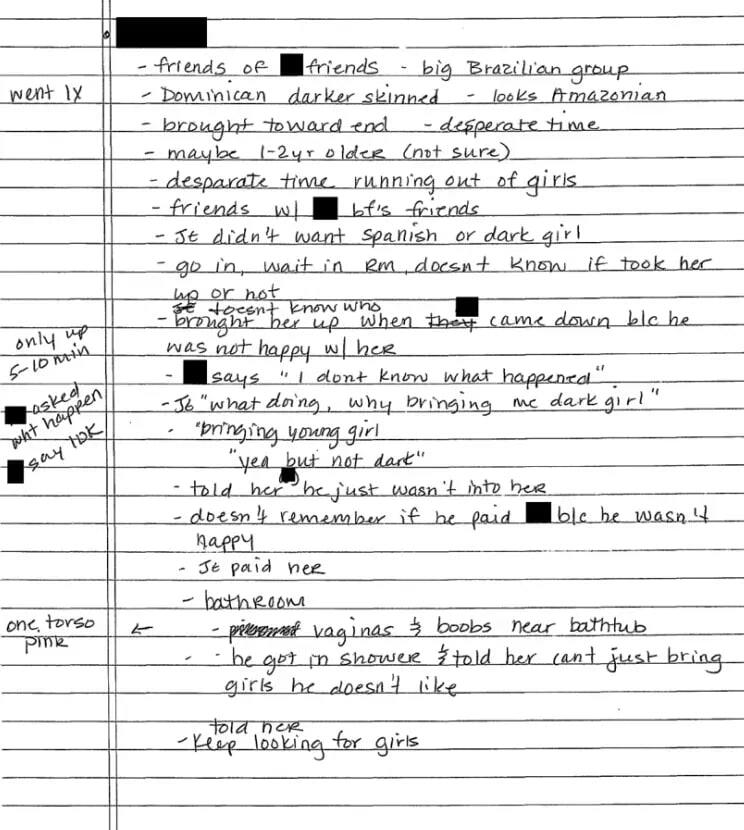 - friends of friends - big Brazilian group
went 1x
- Dominican darker skinned - looks Amazonian
- brought toward end - desperate time
- maybe 1-2yr older (not sure)
- desparate time running out of girls
- friends w/ bf's friends
- JE didn't want Spanish or dark girl
- go in, wait in Rm, doesnt know if took her
up or not
JE doesnt know who
- brought her up when they came down b/c he
was not happy w/ her
only up
5-10 min
- says "I dont know what happened"
asked
wht happen
say IDK
- JE "what doing, why bringing me dark girl"
- "bringing young girl
"yea but not dark"
- told her he just wasn't into her
- doesn't remember if he paid b/c he wasn't
happy
- JE paid her
- bathroom
one torso
pink
← - vaginas & boobs near bathtub
- he got in shower & told her cant just bring
girls he doesn't like
told her
- Keep looking for girls